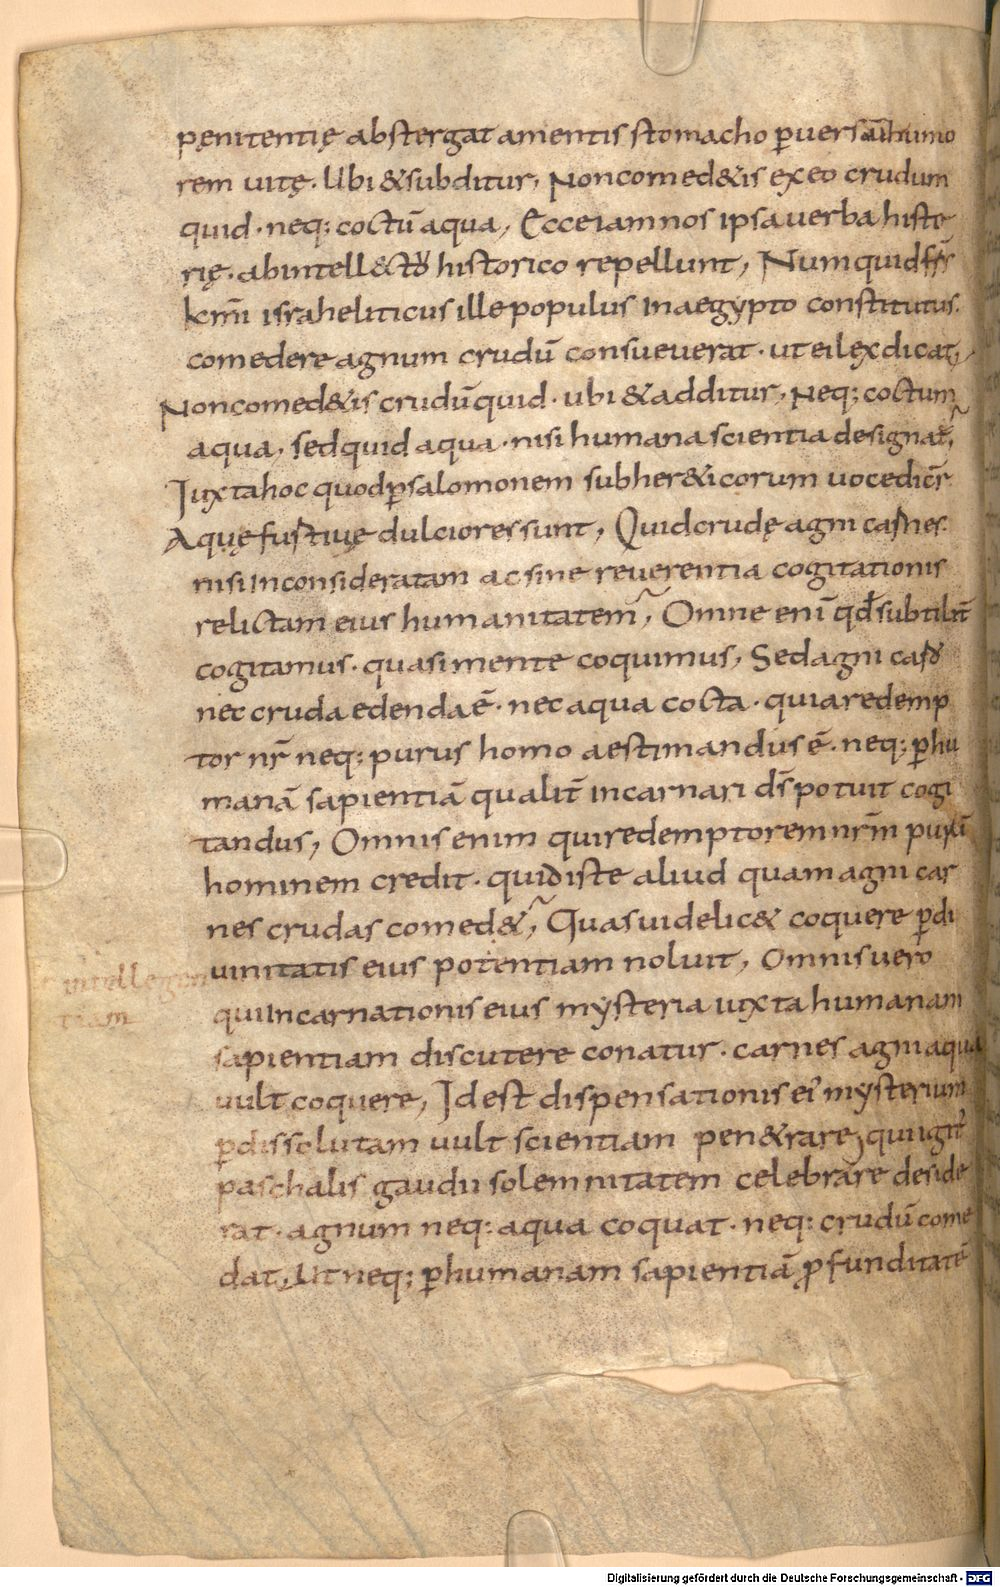 pęnitentię abstergat amentis stomacho ꝑuersam humo
rem uitę. Ubi & subditur, Non comed&is ex eo crudum
quid. neq; coctū aqua, Ecce iam nos ipsa uerba histo
rię. ab intell&u historico repellunt, Numquid frs
kmi israheliticus ille populus in aegypto constitutus.
comedere agnum crudū consueuerat. ut ei lex dicat,
Non comed&is crudū quid. ubi & additur, Neq; coctum
aqua, sed quid aqua. nisi humana scientia designat,
Iuxta hoc quod ꝑ salomonem sub her&icorum uoce dicr
Aquę furtiuę dulciores sunt, Quid crudę agni carnes.
nisi inconsideratam ac sine reuerentia cogitationis
relictam eius humanitatem, Omne enī qđ subtilit
cogitamus. quasi mente coquimus, Sed agni caro
nec cruda edenda ē. nec aqua cocta. quia redemp
tor nr̄ neq; purus homo aestimandus ē. neq; ꝑ hu
manā sapientiā qualit̄ incarnari ds̄ potuit cogi
tandus, Omnis enim qui redemptorem nr̄m purū
hominem credit. quid iste aliud quam agni car
nes crudas comed&, Quas uidelic& coquere ꝑ di
uinitatis eius potentiam noluit, Omnis uero
intellegen
tiam
qui incarnationis eius mysteria iuxta humanam
sapientiam discutere conatur. carnes agni aqua
uult coquere, Id est dispensationis ei' mysterium
ꝑ dissolutam uult scientiam pen&rare, qui igit
paschalis gaudii solemnitatem celebrare deside
rat. agnum neq; aqua coquat. neq; crudū come
dat, Ut neq; ꝑ humanam sapientiā ꝓfunditatē